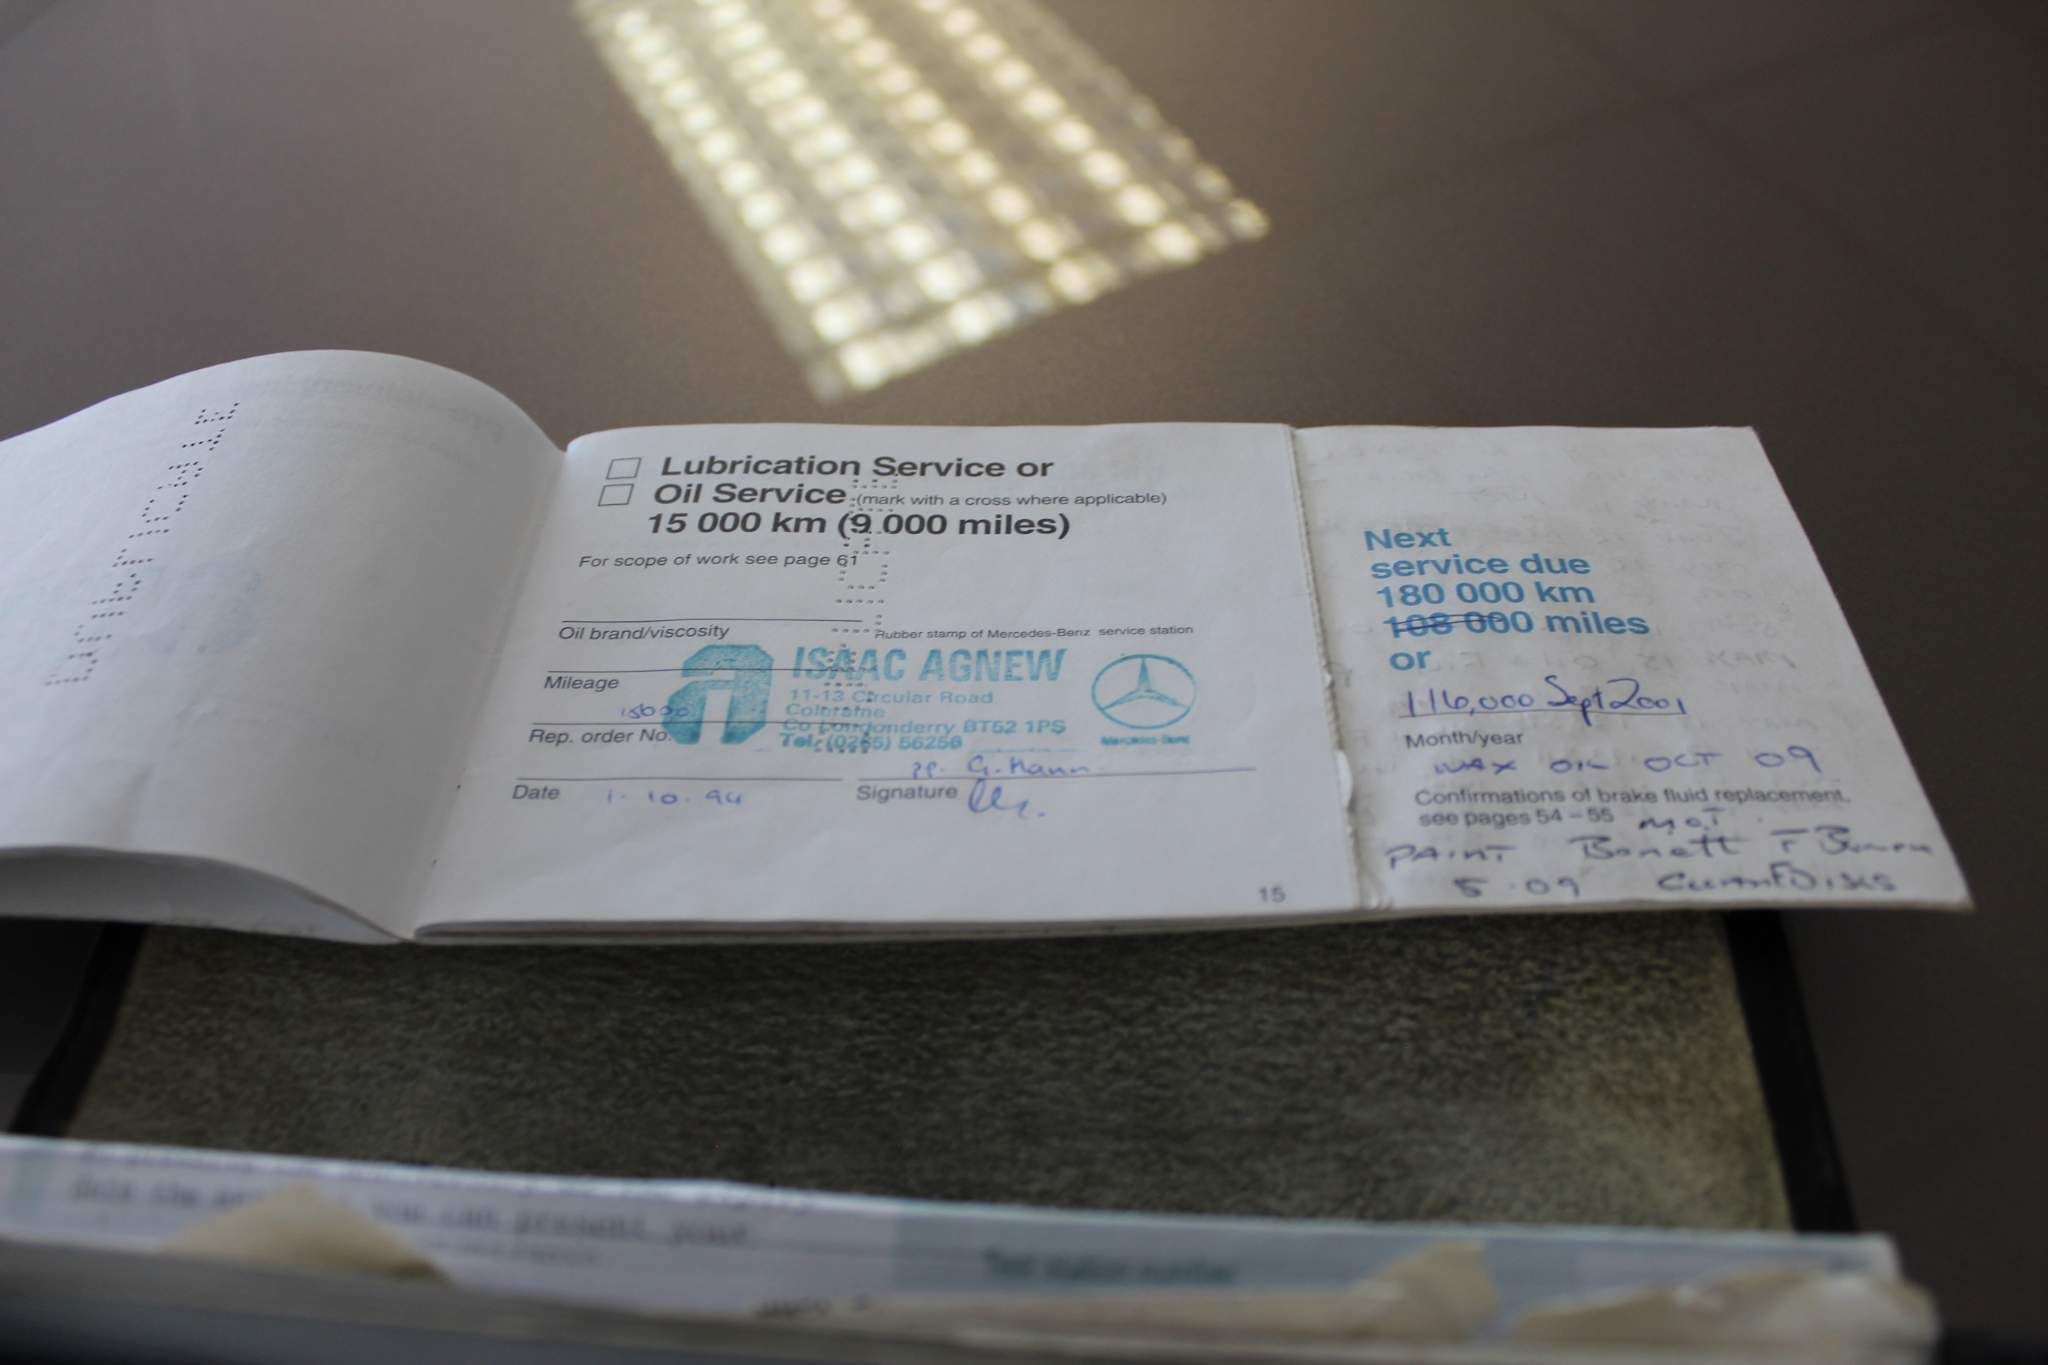 Lubrication Service or
Oil Service (mark with a cross where applicable)
15 000 km (9 000 miles)
For scope of work see page 61
Oil brand/viscosity
Rubber stamp of Mercedes-Benz service station
ISAAC AGNEW
11-13 Circular Road
Coleraine
Co Londonderry BT52 1PS
Tel: (0265) 56256
Mercedes-Benz
Mileage
Rep. order No.
pp. G. Mann
Date 1. 10. 94
Signature
15
Next
service due
180 000 km
108 000 miles
or
116,000 Sept 2001
Month/year
WAX OIL OCT 09
Confirmations of brake fluid replacement,
see pages 54 – 55 MOT
PAINT Bonett
5.09
date the
you can present your
Test station number